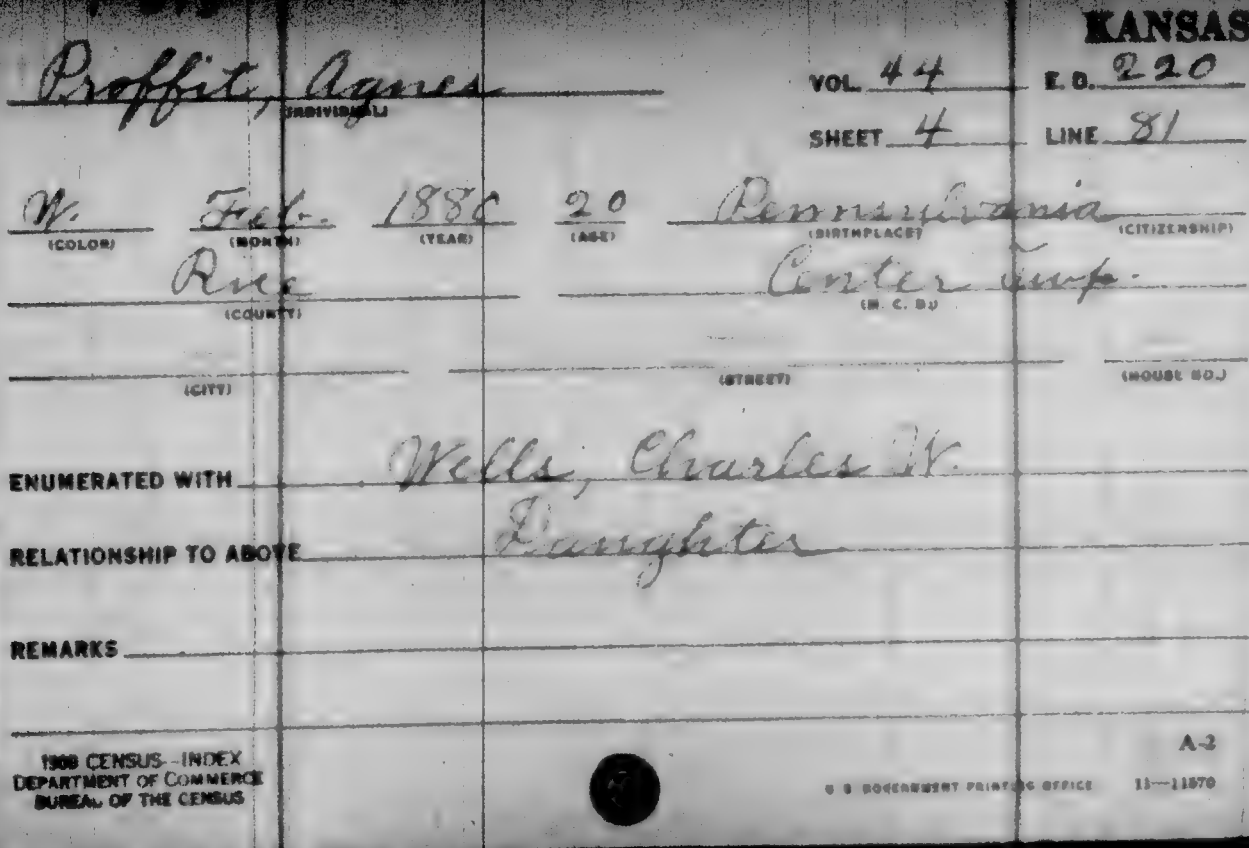 KANSAS
Proffit, Agnes
(INDIVIDUAL)
VOL. 44 E. D. 220
SHEET 4 LINE 81
W. Feb. 1880 20 Pennsylvania
(COLOR) (MONTH) (YEAR) (AGE) (BIRTHPLACE) (CITIZENSHIP)
Rice Center Twp.
(COUNTY) (M. C. D.)
(CITY) (STREET) (HOUSE NO.)
ENUMERATED WITH Wells, Charles W.
RELATIONSHIP TO ABOVE Daughter
REMARKS
A-2
1900 CENSUS--INDEX
DEPARTMENT OF COMMERCE
BUREAU OF THE CENSUS
U S GOVERNMENT PRINTING OFFICE 11—11570